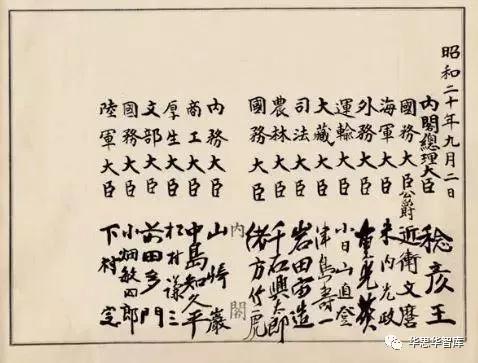 昭和二十年九月二日
内閣總理大臣 稔彦王
國務大臣公爵 近衞文麿
海軍大臣 米内光政
外務大臣 重光葵
運輸大臣 小日山直登
大藏大臣 津島壽一
司法大臣 岩田宙造
農林大臣 千石興太郎
國務大臣 緒方竹虎
内閣
内務大臣 山崎巖
商工大臣 中島知久平
厚生大臣 松村謙三
文部大臣 前田多門
國務大臣 小畑敏四郎
陸軍大臣 下村定
华思华智库